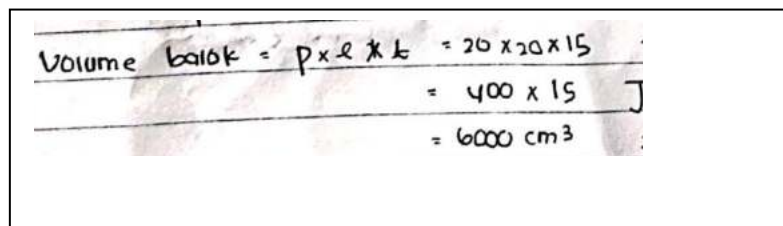 Volume balok = p x l x t = 20 x 20 x 15
= 400 x 15
= 6000 cm³